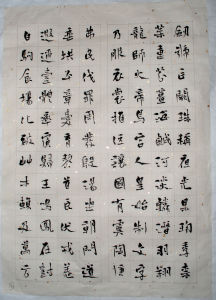 劍號巨闕珠稱夜光果珍李柰
菜重芥薑海鹹河淡鱗潛羽翔
龍師火帝鳥官人皇始制文字
乃服衣裳推位讓國有虞陶唐
弔民伐罪周發殷湯坐朝問道
垂拱平章愛育黎首臣伏戎羌
遐邇壹體率賓歸王鳴鳳在樹
白駒食場化被草木賴及萬方